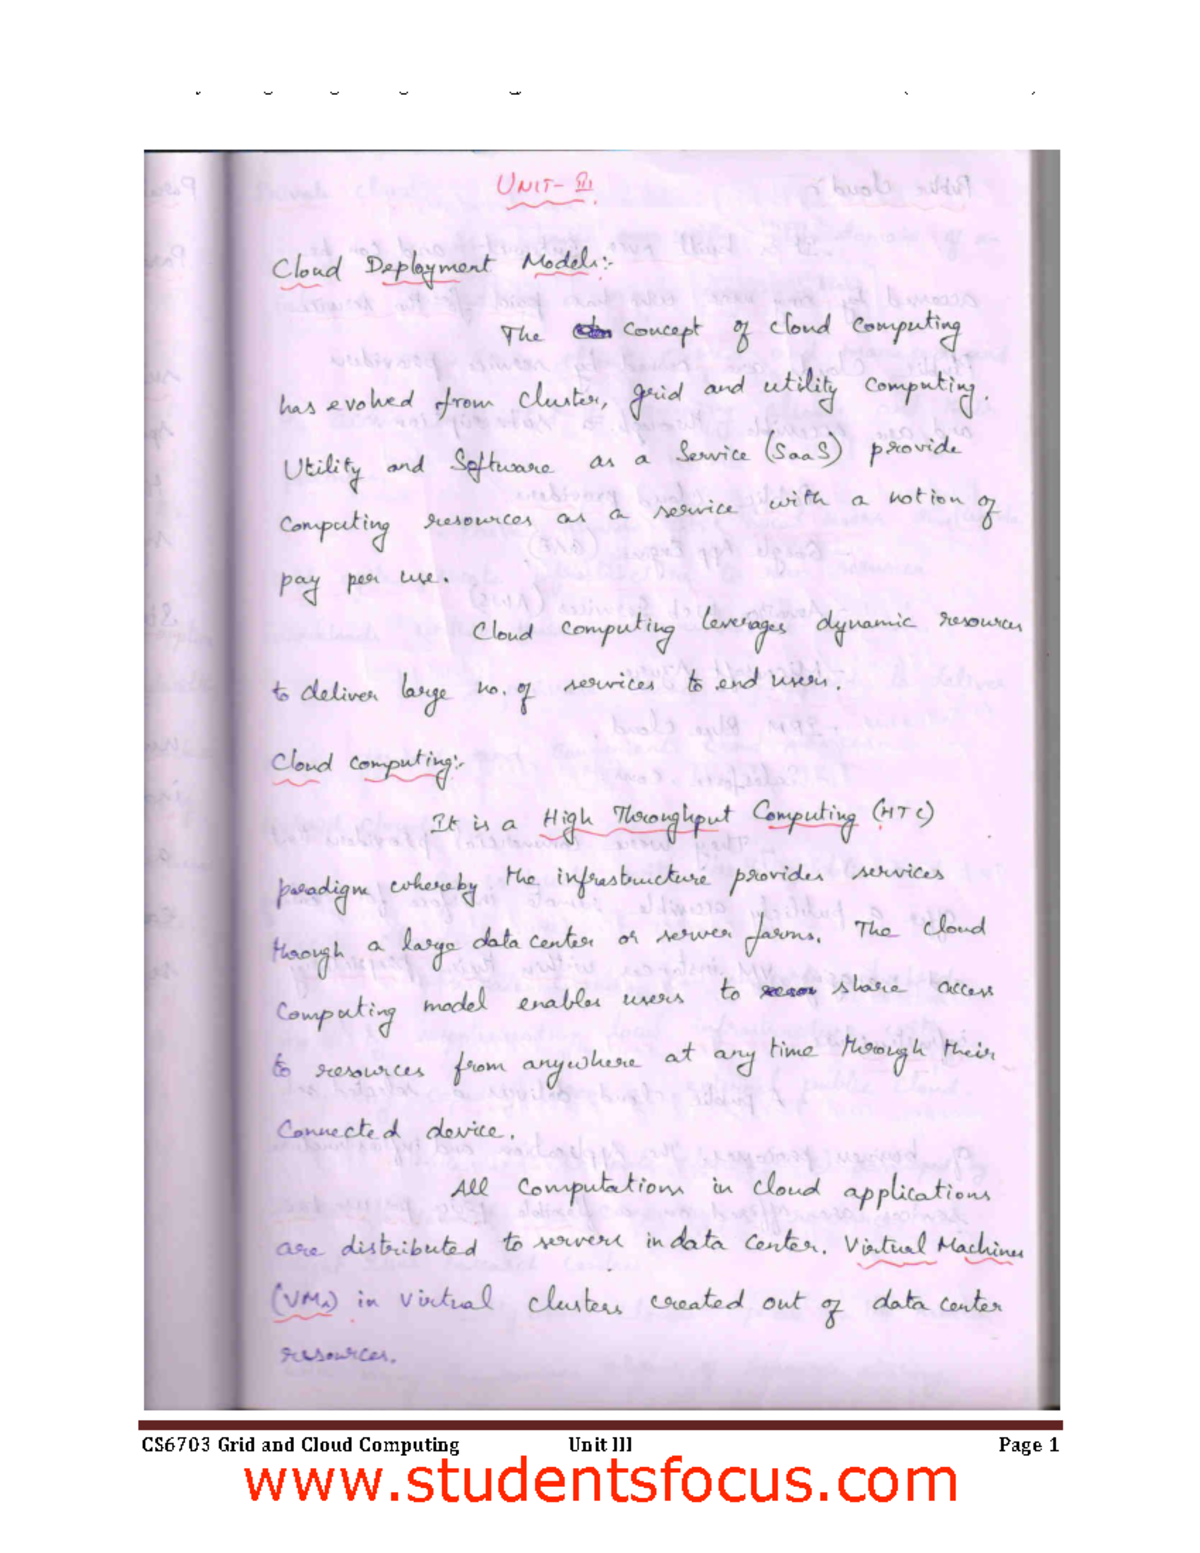 UNIT- III
Cloud Deployment Models:-
The concept of cloud computing
has evolved from cluster, grid and utility computing.
Utility and Software as a Service (SaaS) provide
computing resources as a service with a notion of
pay per use.
Cloud computing leverages dynamic resources
to deliver large no. of services to end users.
Cloud computing:-
It is a High Throughput Computing (HTC)
paradigm whereby the infrastructure provides services
through a large data center or server farms. The cloud
computing model enables users to share access
to resources from anywhere at any time through their
connected device.
All computations in cloud applications
are distributed to servers in data center. Virtual Machines
(VMs) in virtual clusters created out of data center
resources.
CS6703 Grid and Cloud Computing Unit III Page 1
www.studentsfocus.com